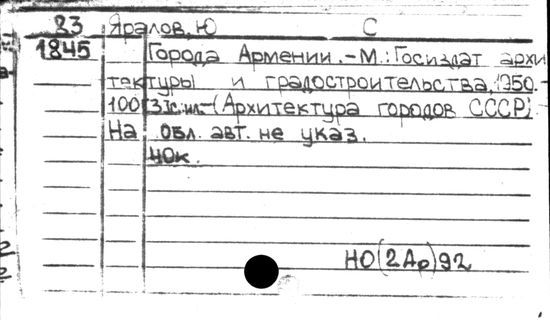 83 Яралов, Ю С
1845 Города Армении.-М.: Госиздат архи
тектуры и градостроительства, 1950.-
100 с: ил.-(Архитектура городов СССР).
На обл. авт. не указ.
40к.
НО(2Ар)92